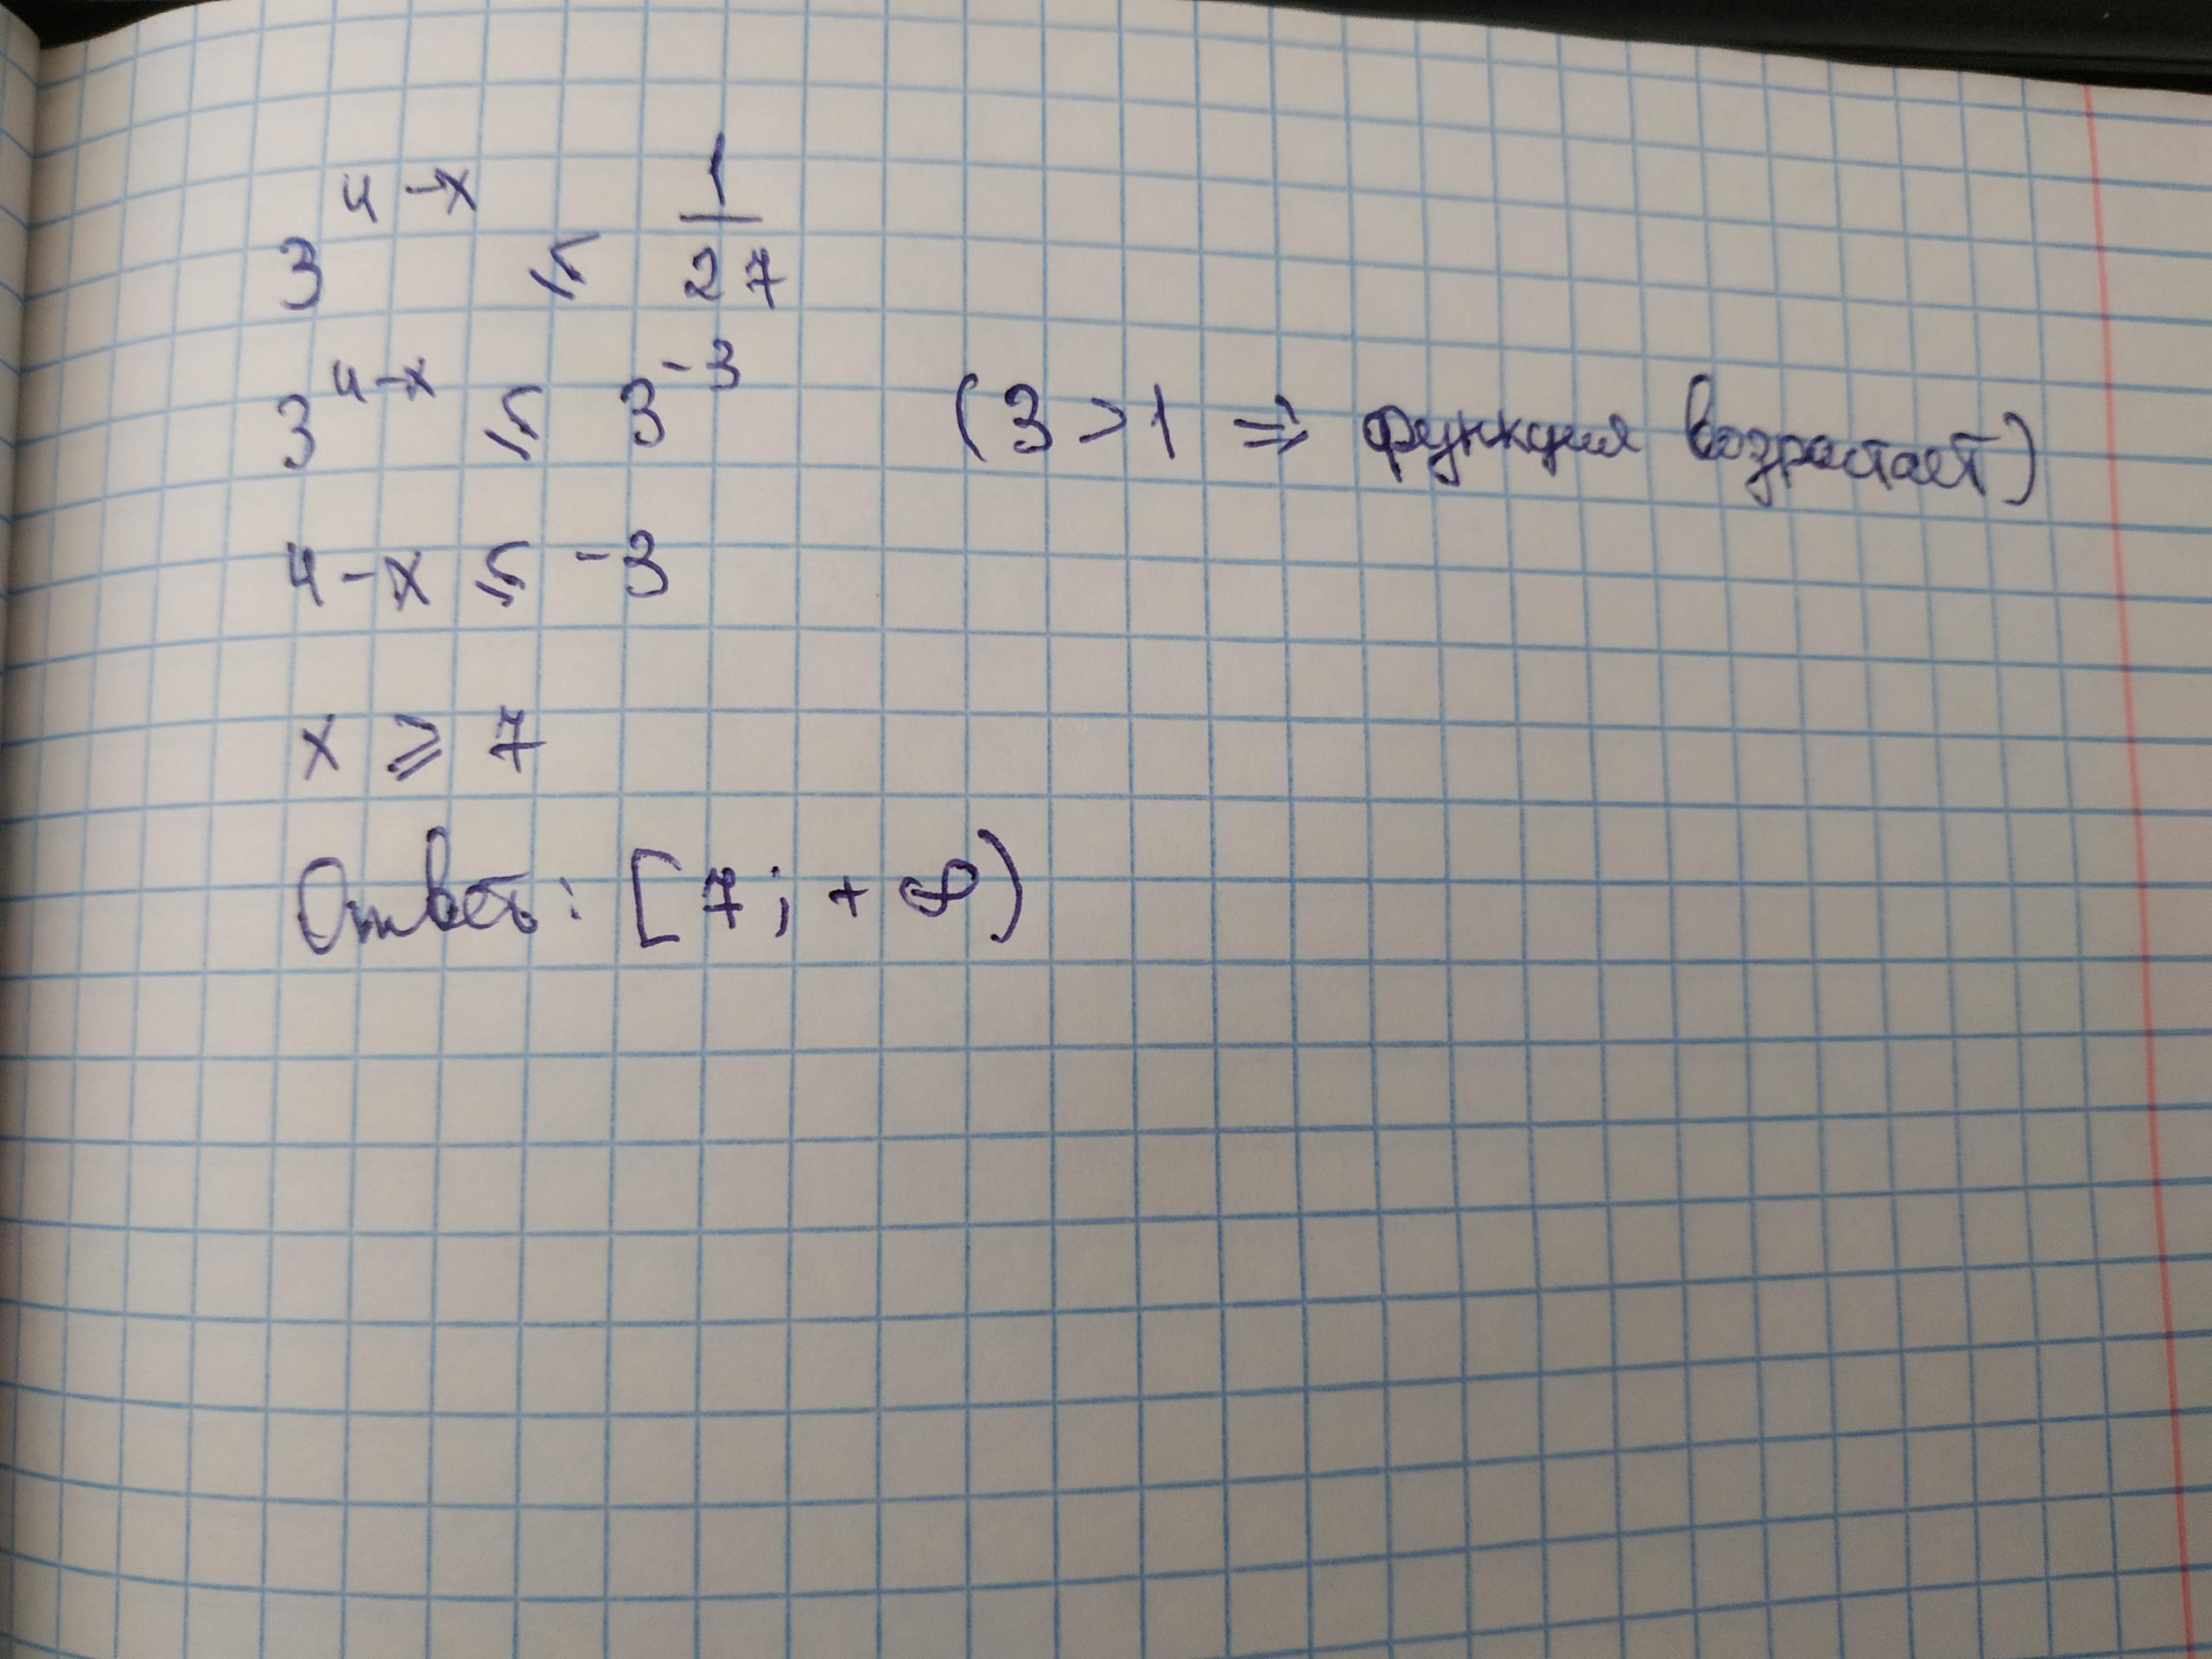 3^{4-x} ⩽ \frac{1}{27}
3^{4-x} ⩽ 3^{-3} (3 > 1 ⇒ функция возрастает)
4-x ⩽ -3
x ⩾ 7
Ответ: [7; +∞)